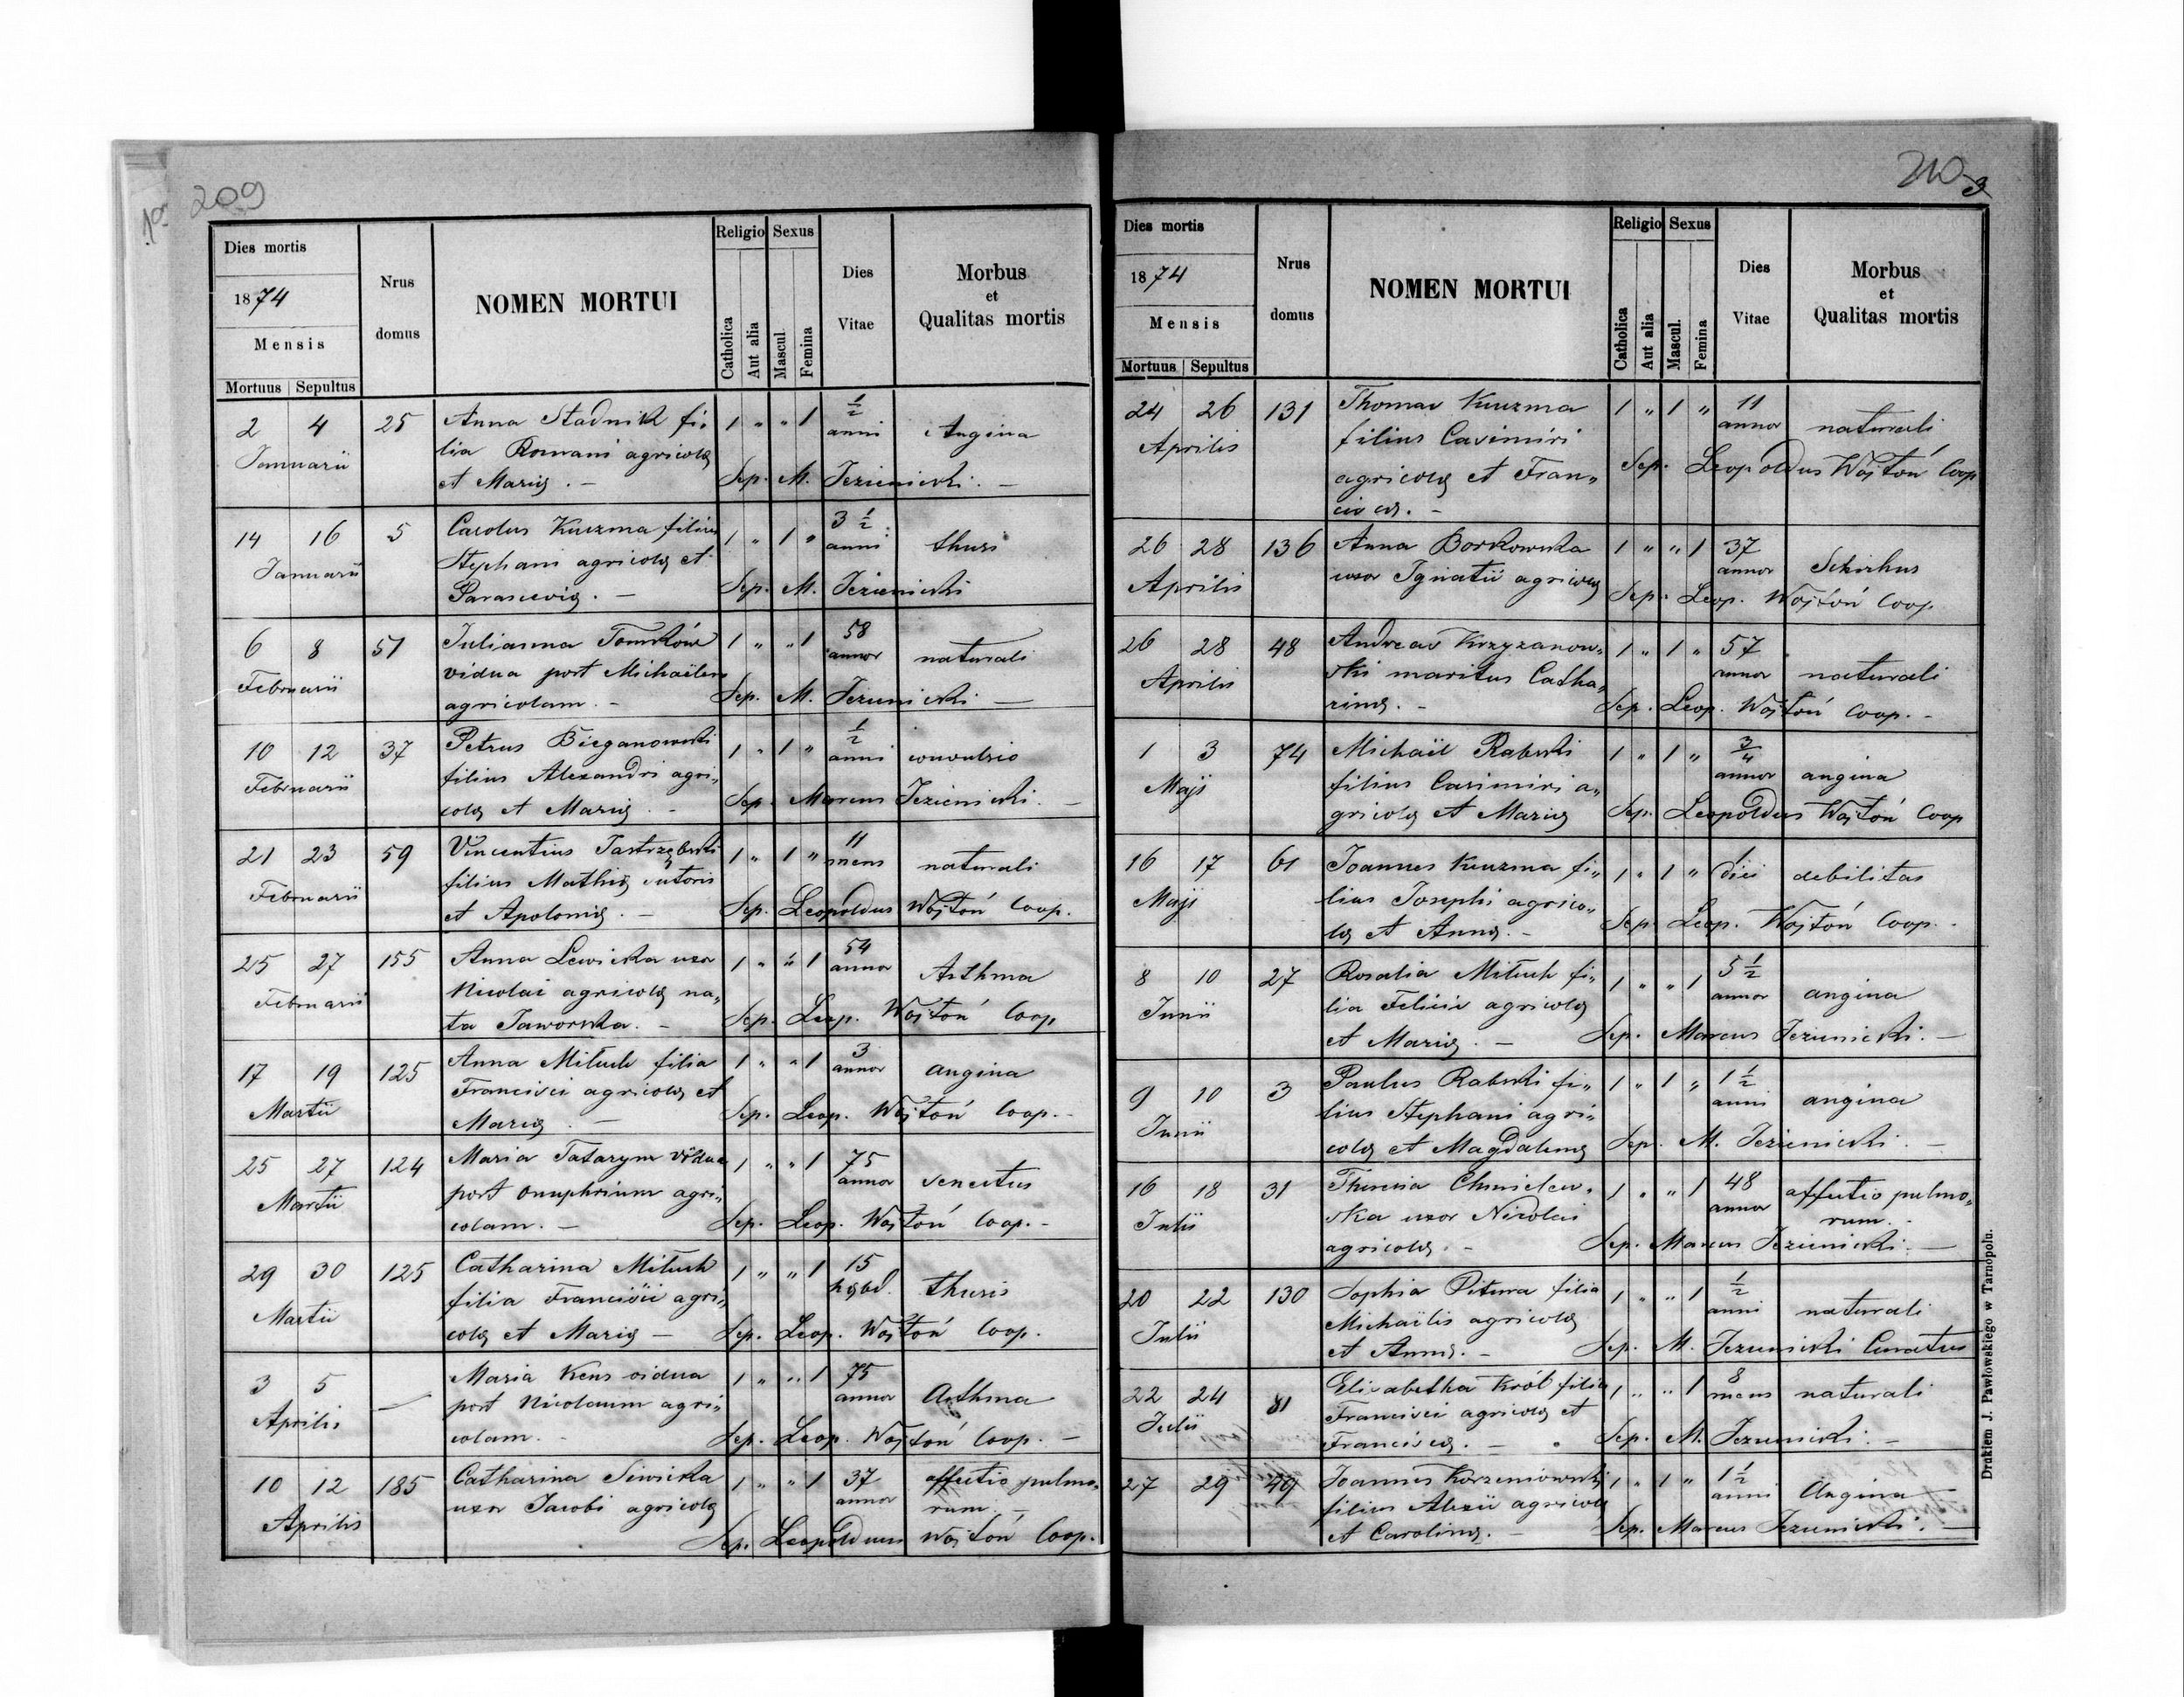 209
Dies mortis
1874
Mensis
Mortuus Sepultus
Nrus domus
NOMEN MORTUI
Religio Sexus
Catholica
Aut alia
Mascul.
Femina
Dies Vitae
Morbus et Qualitas mortis
2 4 25 Anna Stadnik fi- 1 " " 1 ½ anni Angina
Januarii lia Romani agricolæ
et Mariæ. - Sep. M. Jezienicki. -
14 16 5 Carolus Kuczma filius 1 " 1 " 3 ½ anni thusis
Januarii Stephani agricolæ et
Parasceviæ. - Sep. M. Jezienicki
6 8 51 Julianna Tomków 1 " " 1 58 annor naturali
Februarii vidua post Michaëlem
agricolam. - Sep. M. Jezienicki -
10 12 37 Petrus Bieganowski 1 " 1 " ½ anni convulsio
Februarii filius Alexandri agri-
colæ et Mariæ. - Sep. Marcus Jezienicki. -
21 23 59 Vincentius Jastrzębski 1 " 1 " 11 mens naturali
Februarii filius Mathiæ sutoris
et Apoloniæ. - Sep. Leopoldus Wojtoń Coop.
25 27 155 Anna Lewicka uxor 1 " " 1 54 annor Asthma
Februarii Nicolai agricolæ na-
ta Jaworska. - Sep. Leop. Wojtoń Coop
17 19 125 Anna Miłuch filia 1 " " 1 3 annor angina
Martii Francisci agricolæ et
Mariæ. - Sep. Leop. Wojtoń Coop. -
25 27 124 Maria Tataryn vidua 1 " " 1 75 annor senectus
Martii post Onuphrium agri-
colam. - Sep. Leop. Wojtoń Coop. -
29 30 125 Catharina Miłuch 1 " " 1 15 hebd. thusis
Martii filia Francisci agri-
colæ et Mariæ - Sep. Leop. Wojtoń Coop.
3 5 - Maria Kens vidua 1 " " 1 75 annor Asthma
Aprilis post Nicolaum agri-
colam. - Sep. Leop. Wojtoń Coop. -
10 12 185 Catharina Siwicka 1 " " 1 37 annor affectio pulmo-
Aprilis uxor Jacobi agricolæ rum. -
Sep. Leopoldus Wojtoń Coop.
210
3
Dies mortis
1874
Mensis
Mortuus Sepultus
Nrus domus
NOMEN MORTUI
Religio Sexus
Catholica
Aut alia
Mascul.
Femina
Dies Vitae
Morbus et Qualitas mortis
24 26 131 Thomas Kuczma 1 " 1 " 11 annor naturali
Aprilis filius Casimiri
agricolæ et Fran- Sep. Leopoldus Wojtoń Coop
ciscæ. -
26 28 136 Anna Borkowska 1 " " 1 37 annor Schirhus
Aprilis uxor Ignatii agricolæ
Sep. Leop. Wojtoń Coop.
26 28 48 Andreas Krzyzanow- 1 " 1 " 57 annor naturali
Aprilis ski maritus Catha-
rinæ. - Sep. Leop. Wojtoń Coop. -
1 3 74 Michaël Rabski 1 " 1 " ¾ annor angina
Maji filius Casimiri a-
gricolæ et Mariæ Sep. Leopoldus Wojtoń Coop
16 17 61 Joannes Kuczma fi- 1 " 1 " 1 diei debilitas
Maji lius Josephi agrico-
læ et Annæ. - Sep. Leop. Wojtoń Coop. -
8 10 27 Rosalia Miłuch fi- 1 " " 1 5 ½ annor angina
Junii lia Felicis agricolæ
et Mariæ. - Sep. Marcus Jezienicki. -
9 10 3 Paulus Rabski fi- 1 " 1 " 1 ½ anni angina
Junii lius Stephani agri-
colæ et Magdalenæ Sep. M. Jezienicki. -
16 18 31 Theresia Chmielew- 1 " " 1 48 annor affectio pulmo-
Julii ska uxor Nicolai rum. -
agricolæ. - Sep. Marcus Jezienicki. -
20 22 130 Sophia Pitura filia 1 " " 1 ½ anni naturali
Julii Michaëlis agricolæ
et Annæ. - Sep. M. Jezienicki Curatus
22 24 81 Elisabetha Król filia 1 " " 1 8 mens naturali
Julii Francisci agricolæ et
Franciscæ. - Sep. M. Jezienicki. -
27 29 49 Joannes Korzeniowski 1 " 1 " 1 ½ anni Angina
filius Alexii agricolæ
et Carolinæ. - Sep. Marcus Jezienicki. -
Drukiem J. Pawłowskiego w Tarnopolu.